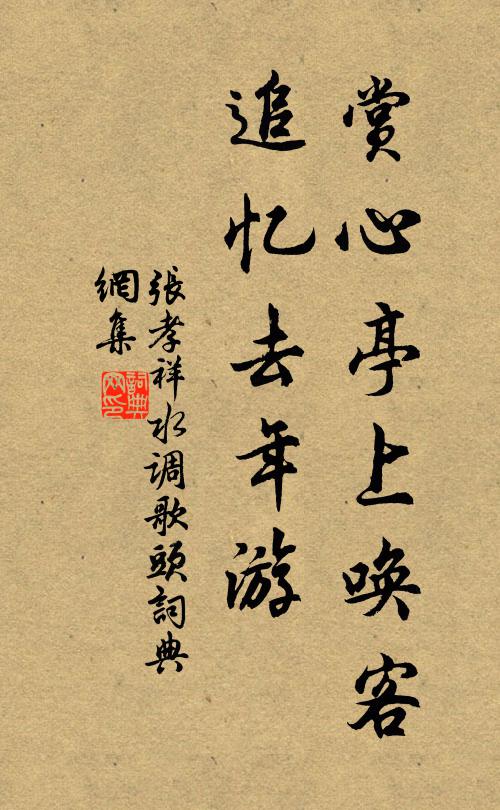 赏心亭上唤客
追忆去年游
張孝祥水调歌頭詞典
網集
詞典
网印